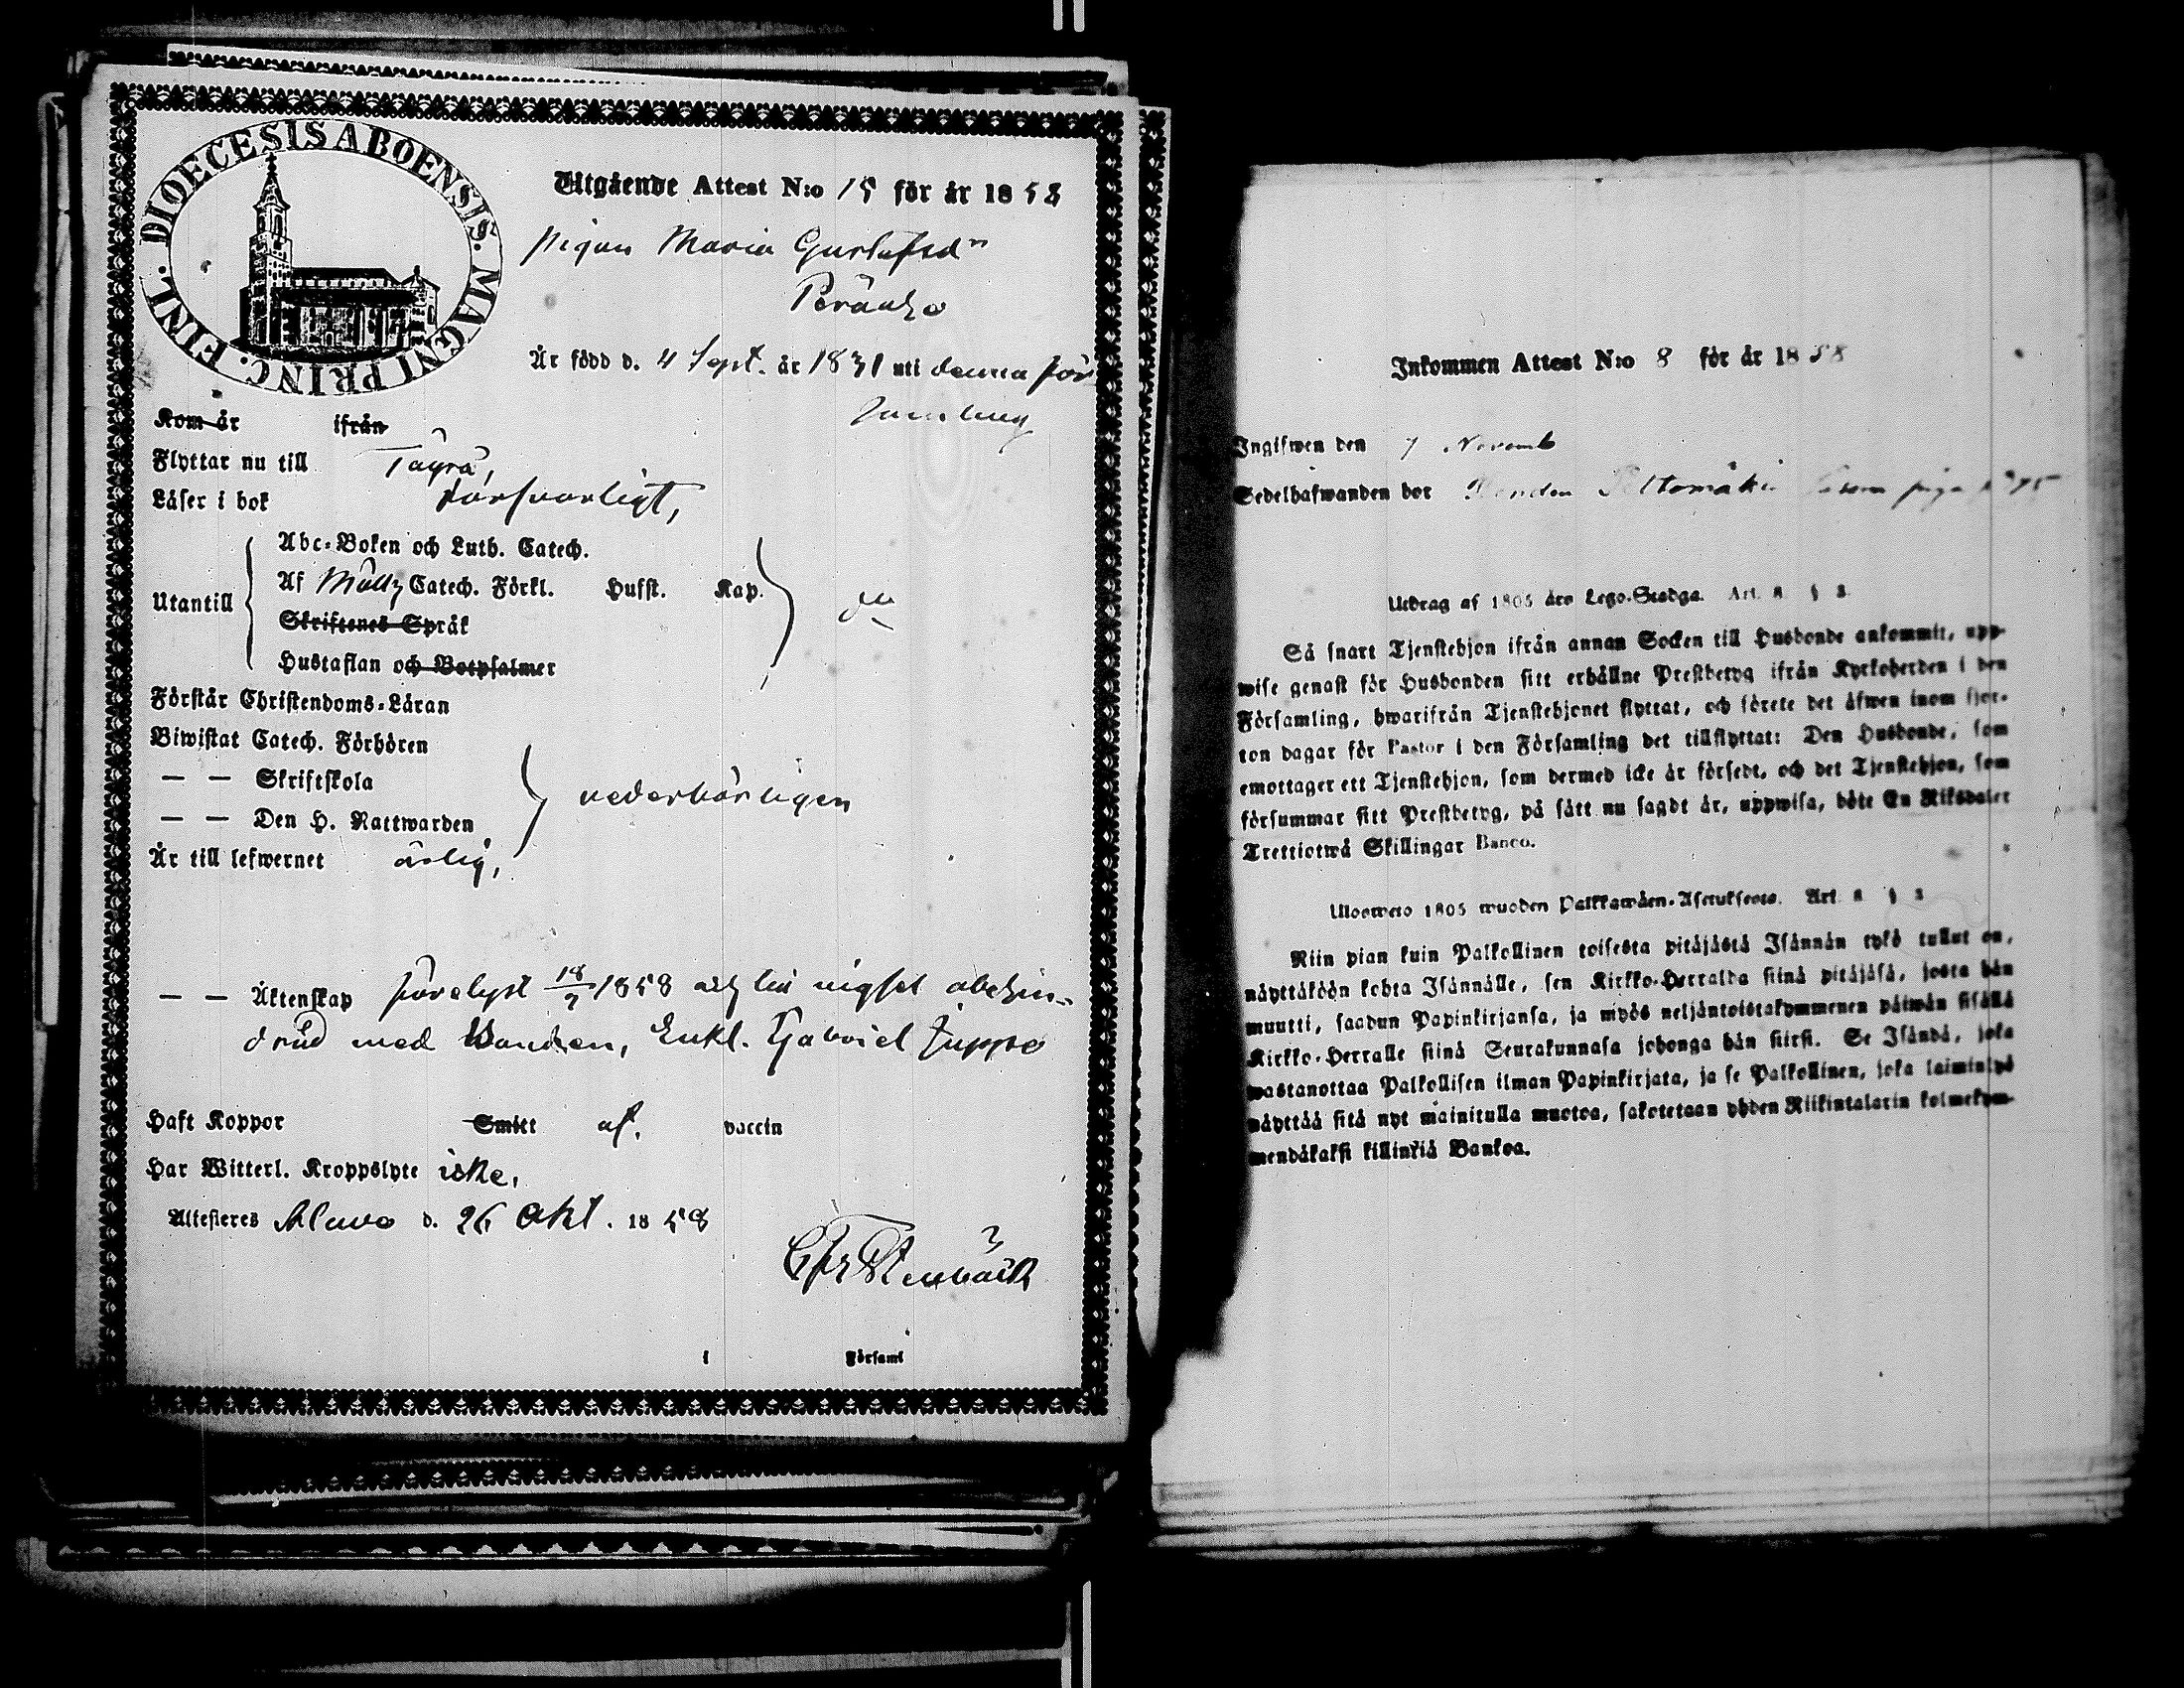 DIOECESIS ABOENSIS. MAGNI PRINC. FINL.
Utgående Attest N:o 15 för år 1858
pigan Maria Gustafsdr
Peräaho
Är född d. 4 Sept. år 1831 uti denna för
samling
Kom år ifrån
Flyttar nu till
Läser i bok försvarligt,
Abc-Boken och Luth. Catech.
Utantill
Af Catech. Förkl. Husst. Kap.
Skriftenes Språk
Hustaflan och Botpsalmer
Förstår Christendoms-Läran
Biwistat Catech. Förhören
— — Skriftskola
vederbörligen
— — Den H. Nattwarden
Är till lefwernet ärlig,
— — Äktenskap förelyst 18/7 1858 och till vigsel obehin-
drad med Bonden, Enkl. Gabriel Juppo
Haft Koppor Smitt af. vaccin
Har Witterl. Kroppslyte icke,
Attesteres Alavo d. 26 Okt. 1858
Stenbäck
i Församl
Inkommen Attest N:o 8 för år 1858
Ingifwen den 7 Novemb
Sedelhafwanden bor Bonden Peltomäki såsom piga
Utdrag af 1805 års Lego-Stadga. Art. 8 § 3
Så snart Tjenstehjon ifrån annan Socken till Husbonde ankommit, upp-
wise genast för Husbonden sitt erhållne Prestbetyg ifrån Kyrkoherden i den
Församling, hwarifrån Tjenstehjonet flyttat, och förete det äfwen inom fjor-
ton dagar för Pastor i den Församling det tillflyttat: Den Husbonde, som
emottager ett Tjenstehjon, som dermed icke är försedt, och det Tjenstehjon, som
försummar sitt Prestbetyg, på sätt nu sagdt är, uppwisa, böte En Riksdaler
Trettiotwå Skillingar Banco.
Uloswero 1805 wuoden Palkkawäen-Asetuksesta. Art. 8 § 3
Niin pian kuin Palkollinen toisesta pitäjästä Isännän tykö tullut on,
näyttäköön kohta Isännälle, sen Kirkko-Herralda siinä pitäjäsä, josta hän
muutti, saadun Papinkirjansa, ja myös neljäntoistakymmenen päiwän sisällä
Kirkko-Herralle siinä Seurakunnasa johonga hän siirsi. Se Isändä, joka
wastanottaa Palkollisen ilman Papinkirjata, ja se Palkollinen, joka laiminlyö
näyttää sitä nyt mainitulla muotoa, sakotetaan yhden Riikintalarin kolmekym-
mendäkaksi killinkiä Bankoa.